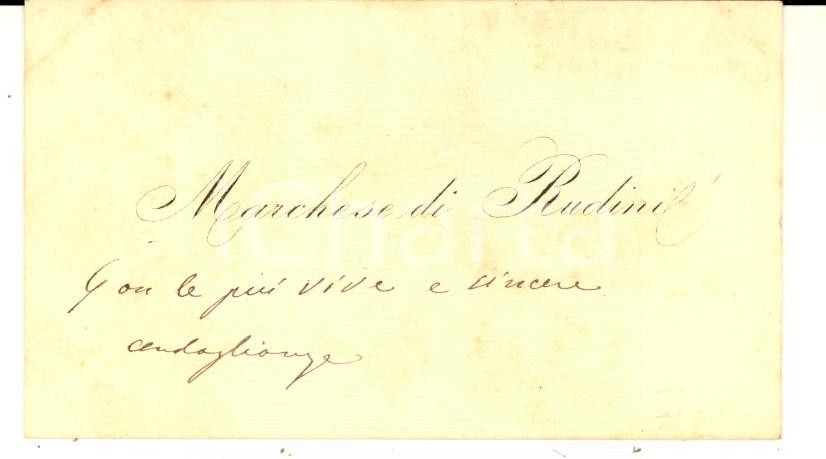 Marchese di Rudinì
Con le più vive e sincere
condoglianze